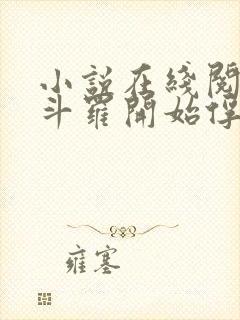 小說在綫閱
斗羅開始俘
雍塞